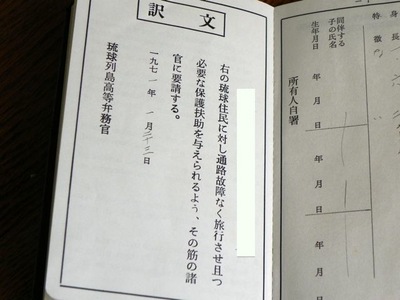 身長
特徴
同伴する
子の氏名
生年月日
年月日
年月日
年月日
所有人自署
訳文
右の琉球住民に対し通路故障なく旅行させ且つ
必要な保護扶助を与えられるよう、その筋の諸
官に要請する。
一九七一年 一月二十三日
琉球列島高等弁務官